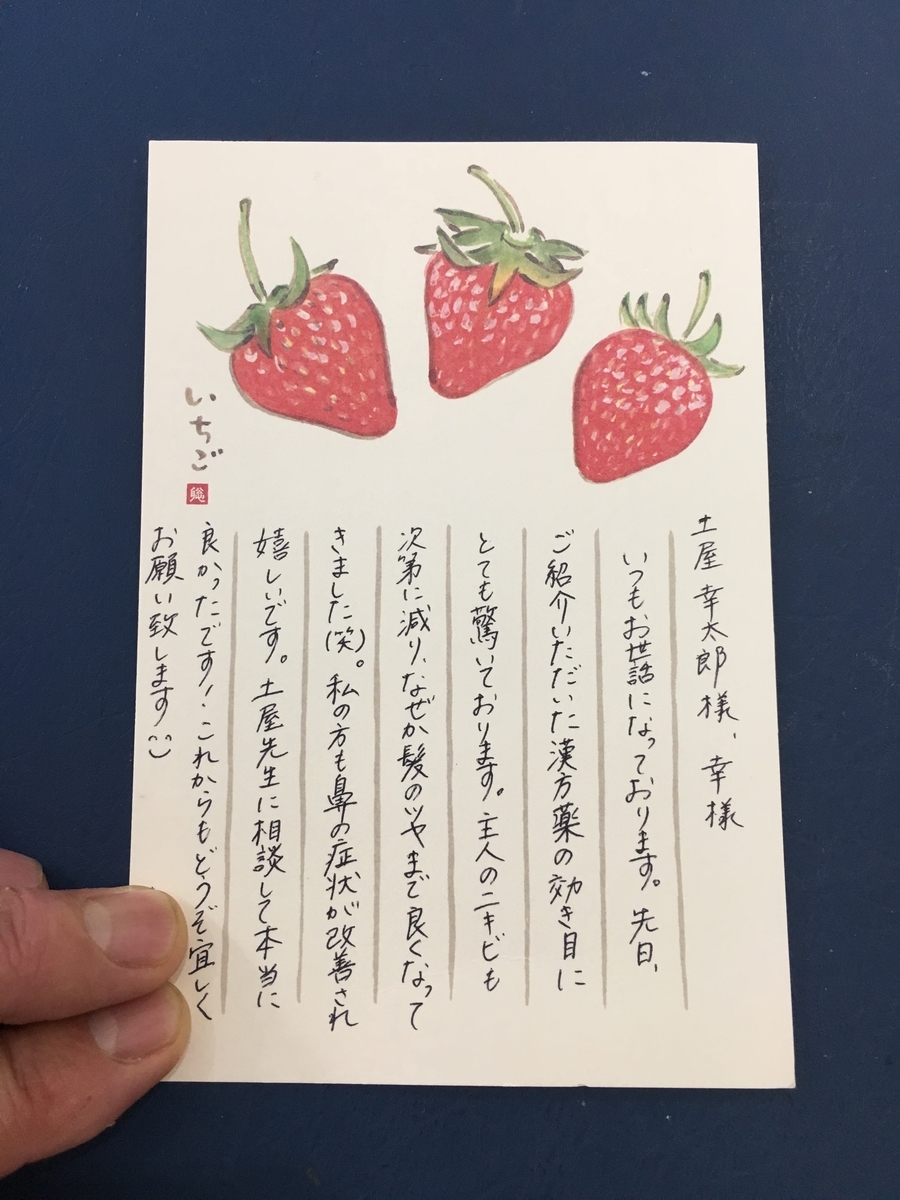 いちご
土屋 幸太郎様、幸様
いつもお世話になっております。先日、
ご紹介いただいた漢方薬の効き目に
とても驚いております。主人のニキビも
次第に減り、なぜか髪のツヤまで良くなって
きました(笑)。私の方も鼻の症状が改善され
嬉しいです。土屋先生に相談して本当に
良かったです!これからもどうぞ宜しく
お願い致します